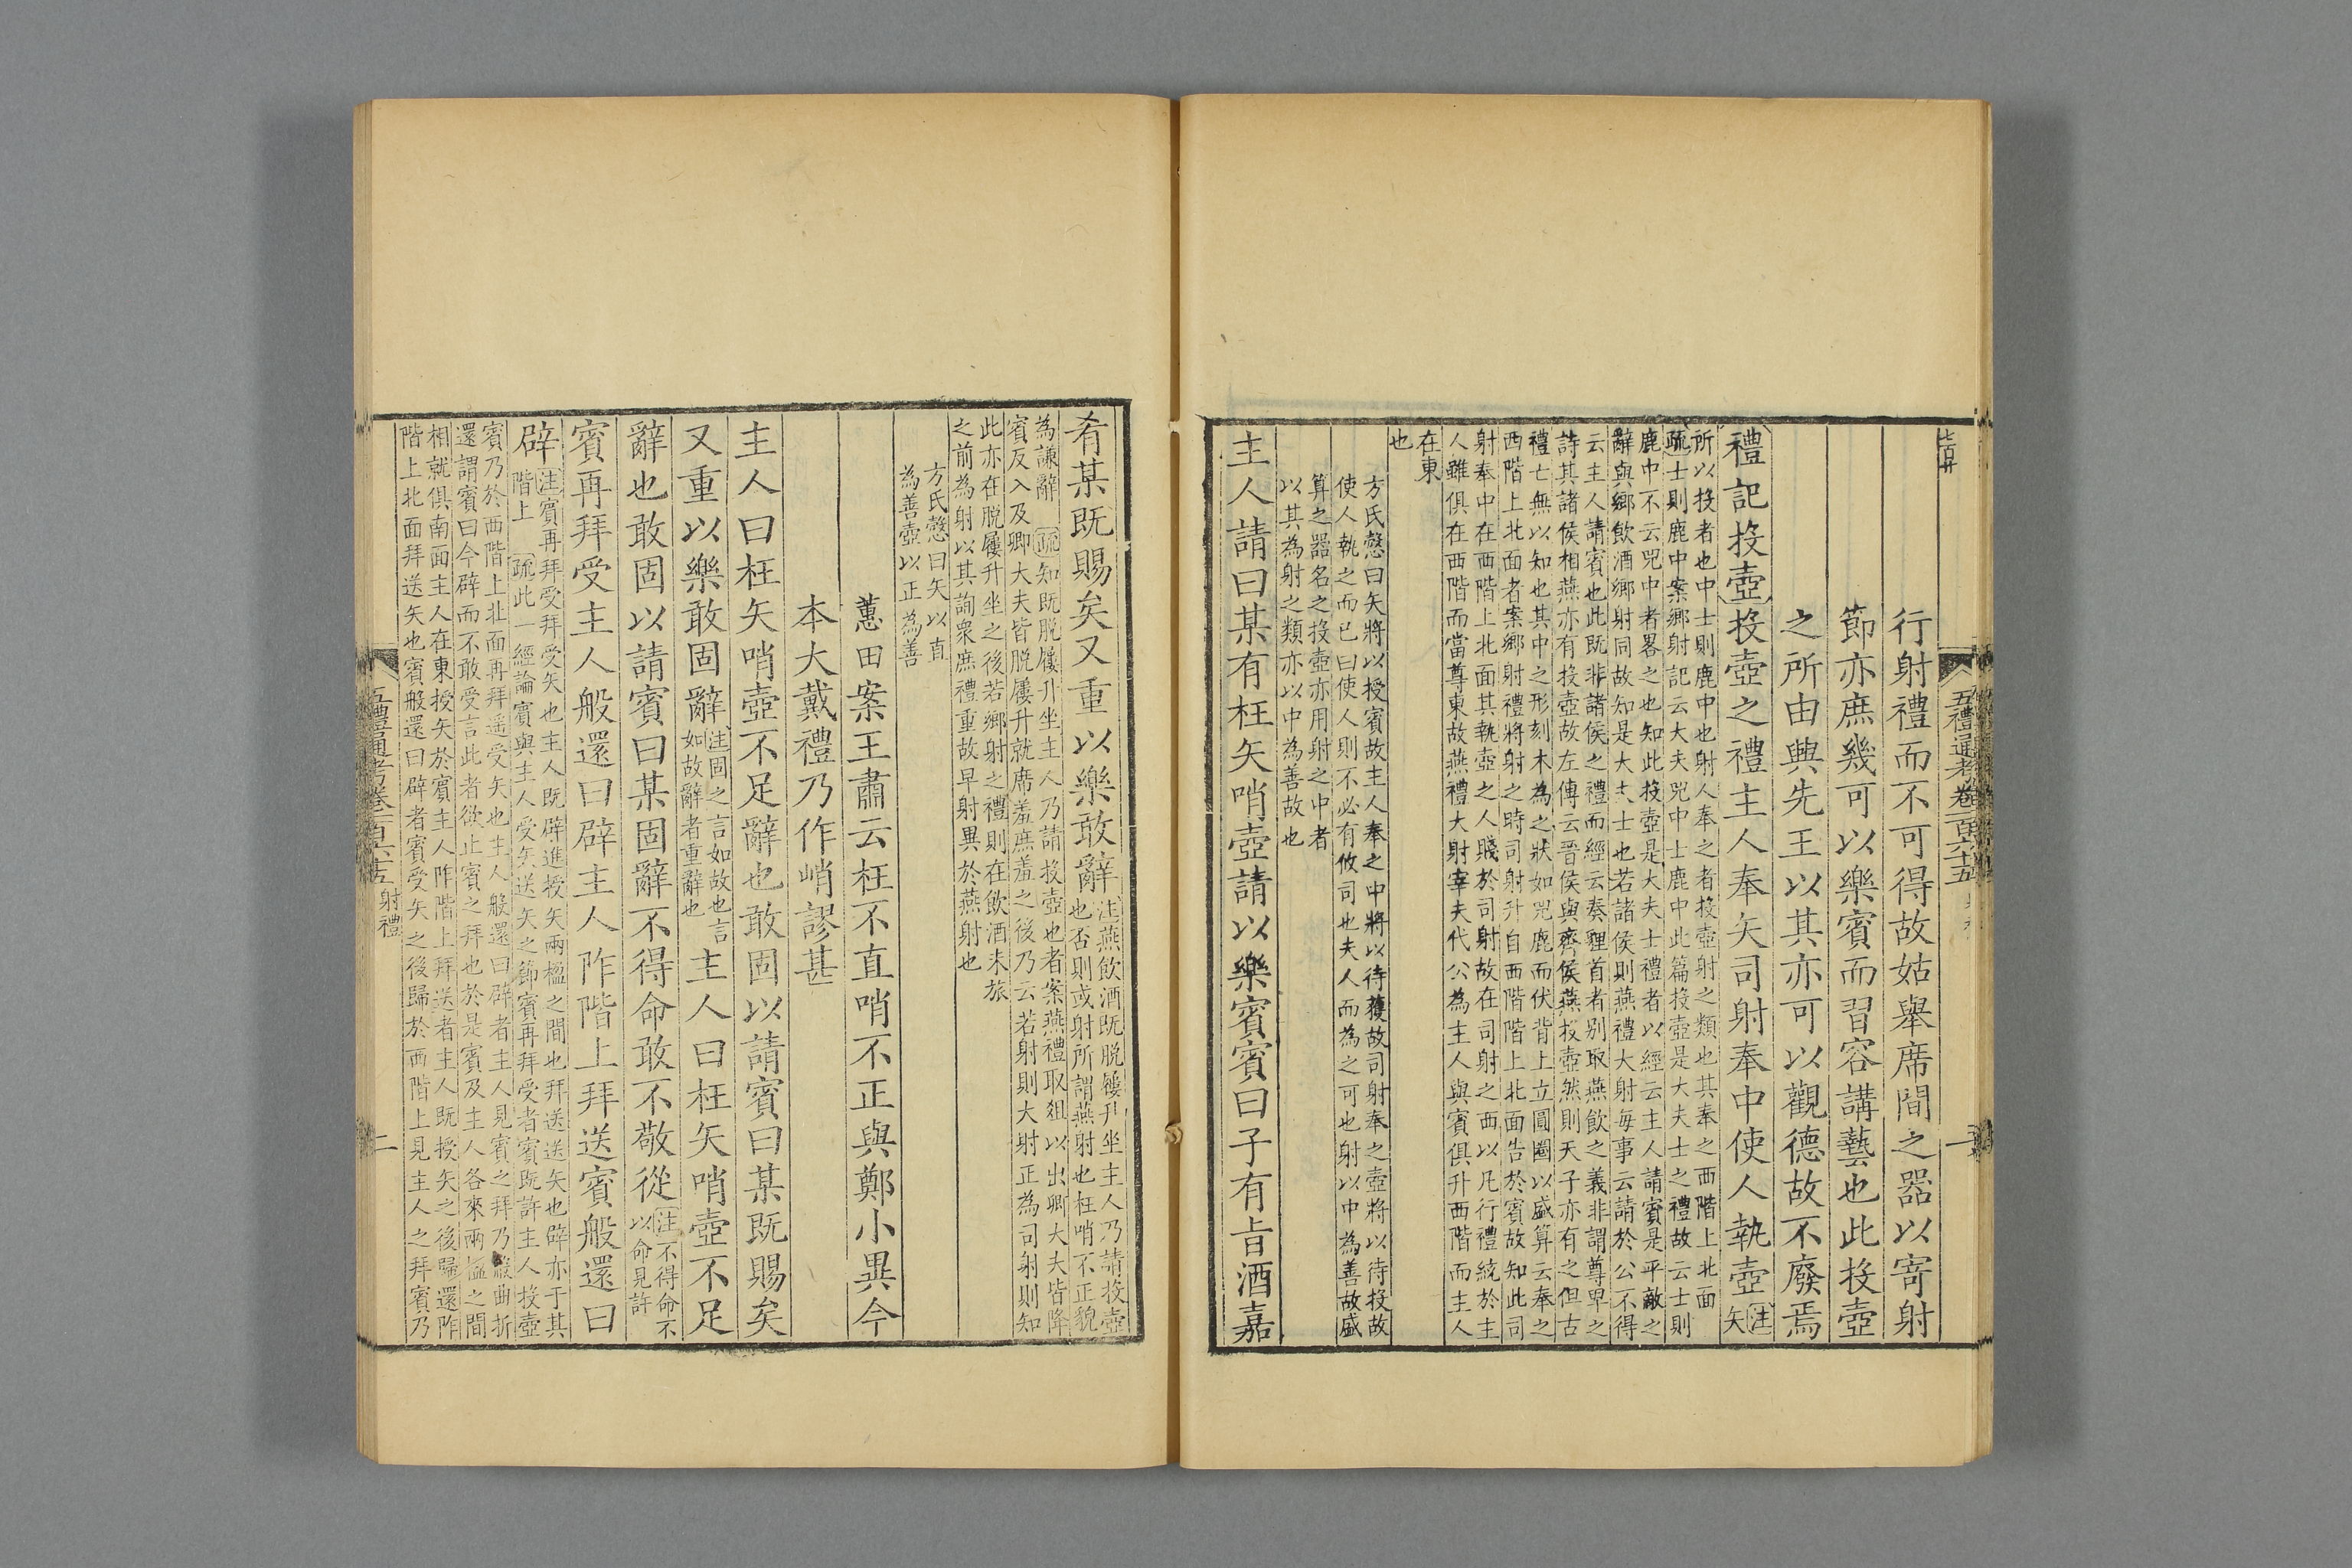 五禮通考卷一百六十五
一
行射禮而不可得故姑舉席間之器以寄射
節亦庶幾可以樂賓而習容講藝也此投壺
之所由興先王以其亦可以觀德故不廢焉
禮記投壺投壺之禮主人奉矢司射奉中使人執壺
注矢
所以投者也中士則鹿中也射人奉之者投壺射之類也其奉之西階上北面
疏士則鹿中案鄉射記云大夫兕中士鹿中此篇投壺是大夫士之禮故云士則
鹿中不云兕中者畧之也知此投壺是大夫士禮者以經云主人請賓是平敵之
辭與鄉飲酒鄉射同故知是大夫士也若諸侯則燕禮大射每事云請於公不得
云主人請賓也此既非諸侯之禮而經云奏貍首者别取燕飲之義非謂尊卑之
詩其諸侯相燕亦有投壺故左傳云晉侯與齊侯燕投壺然則天子亦有之但古
禮亡無以知也其中之形刻木為之狀如兕鹿而伏背上立圓圈以盛算云奉之
西階上北面者案鄉射禮將射之時司射升自西階階上北面告於賓故知此司
射奉中在西階上北面其執壺之人賤於司射故在司射之西以凡行禮統於主
人雖俱在西階而當尊東故燕禮大射宰夫代公為主人與賓俱升西階而主人
在東
也
方氏慤曰矢將以授賓故主人奉之中將以待獲故司射奉之壺將以待投故
使人執之而已曰使人則不必有攸司也夫人而為之可也射以中為善故盛
算之器名之投壺亦用射之中者
以其為射之類亦以中為善故也
主人請曰某有枉矢哨壺請以樂賓賓曰子有旨酒嘉
肴某既賜矣又重以樂敢辭
注燕飲酒既脱屨升坐主人乃請投壺
也否則或射所謂燕射也枉哨不正貌
為謙辭 疏知既脱屨升坐主人乃請投壺也者案燕禮取俎以出卿大夫皆降
賓反入及卿大夫皆脱屨升就席羞庶羞之後乃云若射則大射正為司射則知
此亦在脱屨升坐之後若鄉射之禮則在飲酒未旅
之前為射以其詢衆庶禮重故早射異於燕射也
方氏慤曰矢以直
為善壺以正為善
蕙田案王肅云枉不直哨不正與鄭小異今
本大戴禮乃作峭謬甚
主人曰枉矢哨壺不足辭也敢固以請賓曰某既賜矣
又重以樂敢固辭
注固之言如故也言
如故辭者重辭也
主人曰枉矢哨壺不足
辭也敢固以請賓曰某固辭不得命敢不敬從
注不得命不
以命見許
賓再拜受主人般還曰辟主人阼階上拜送賓般還曰
辟
注賓再拜受拜受矢也主人既辟進授矢兩楹之間也拜送送矢也辟亦于其
階上 疏此一經論賓與主人受矢送矢之節賓再拜受者賓既許主人投壺
賓乃於西階上北面再拜遥受矢也主人般還曰辟者主人見賓之拜乃般曲折
還謂賓曰今辟而不敢受言此者欲止賓之拜也於是賓及主人各來兩楹之間
相就俱南面主人在東授矢於賓主人阼階上拜送者主人既授矢之後歸還阼
階上北面拜送矢也賓般還曰辟者賓受矢之後歸於西階上見主人之拜賓乃
五禮通考卷一百六十五 射禮
二